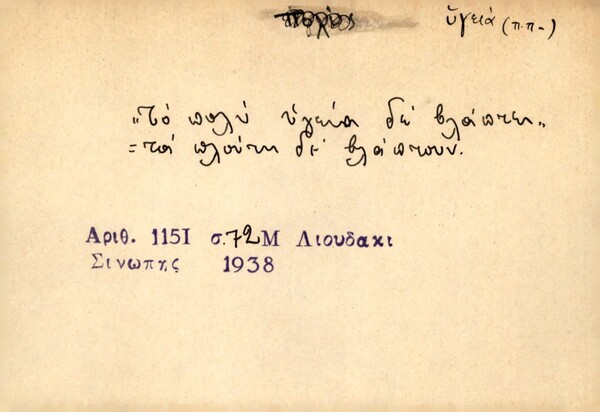 ὑγειά (π.π-)
"Τό πολύ ὑγεία δέ βλάπτει"
=τά πλούτη δέ βλάπτουν.
Αριθ. 1151 σ.72 Μ Λιουδακι
Σινωπης 1938